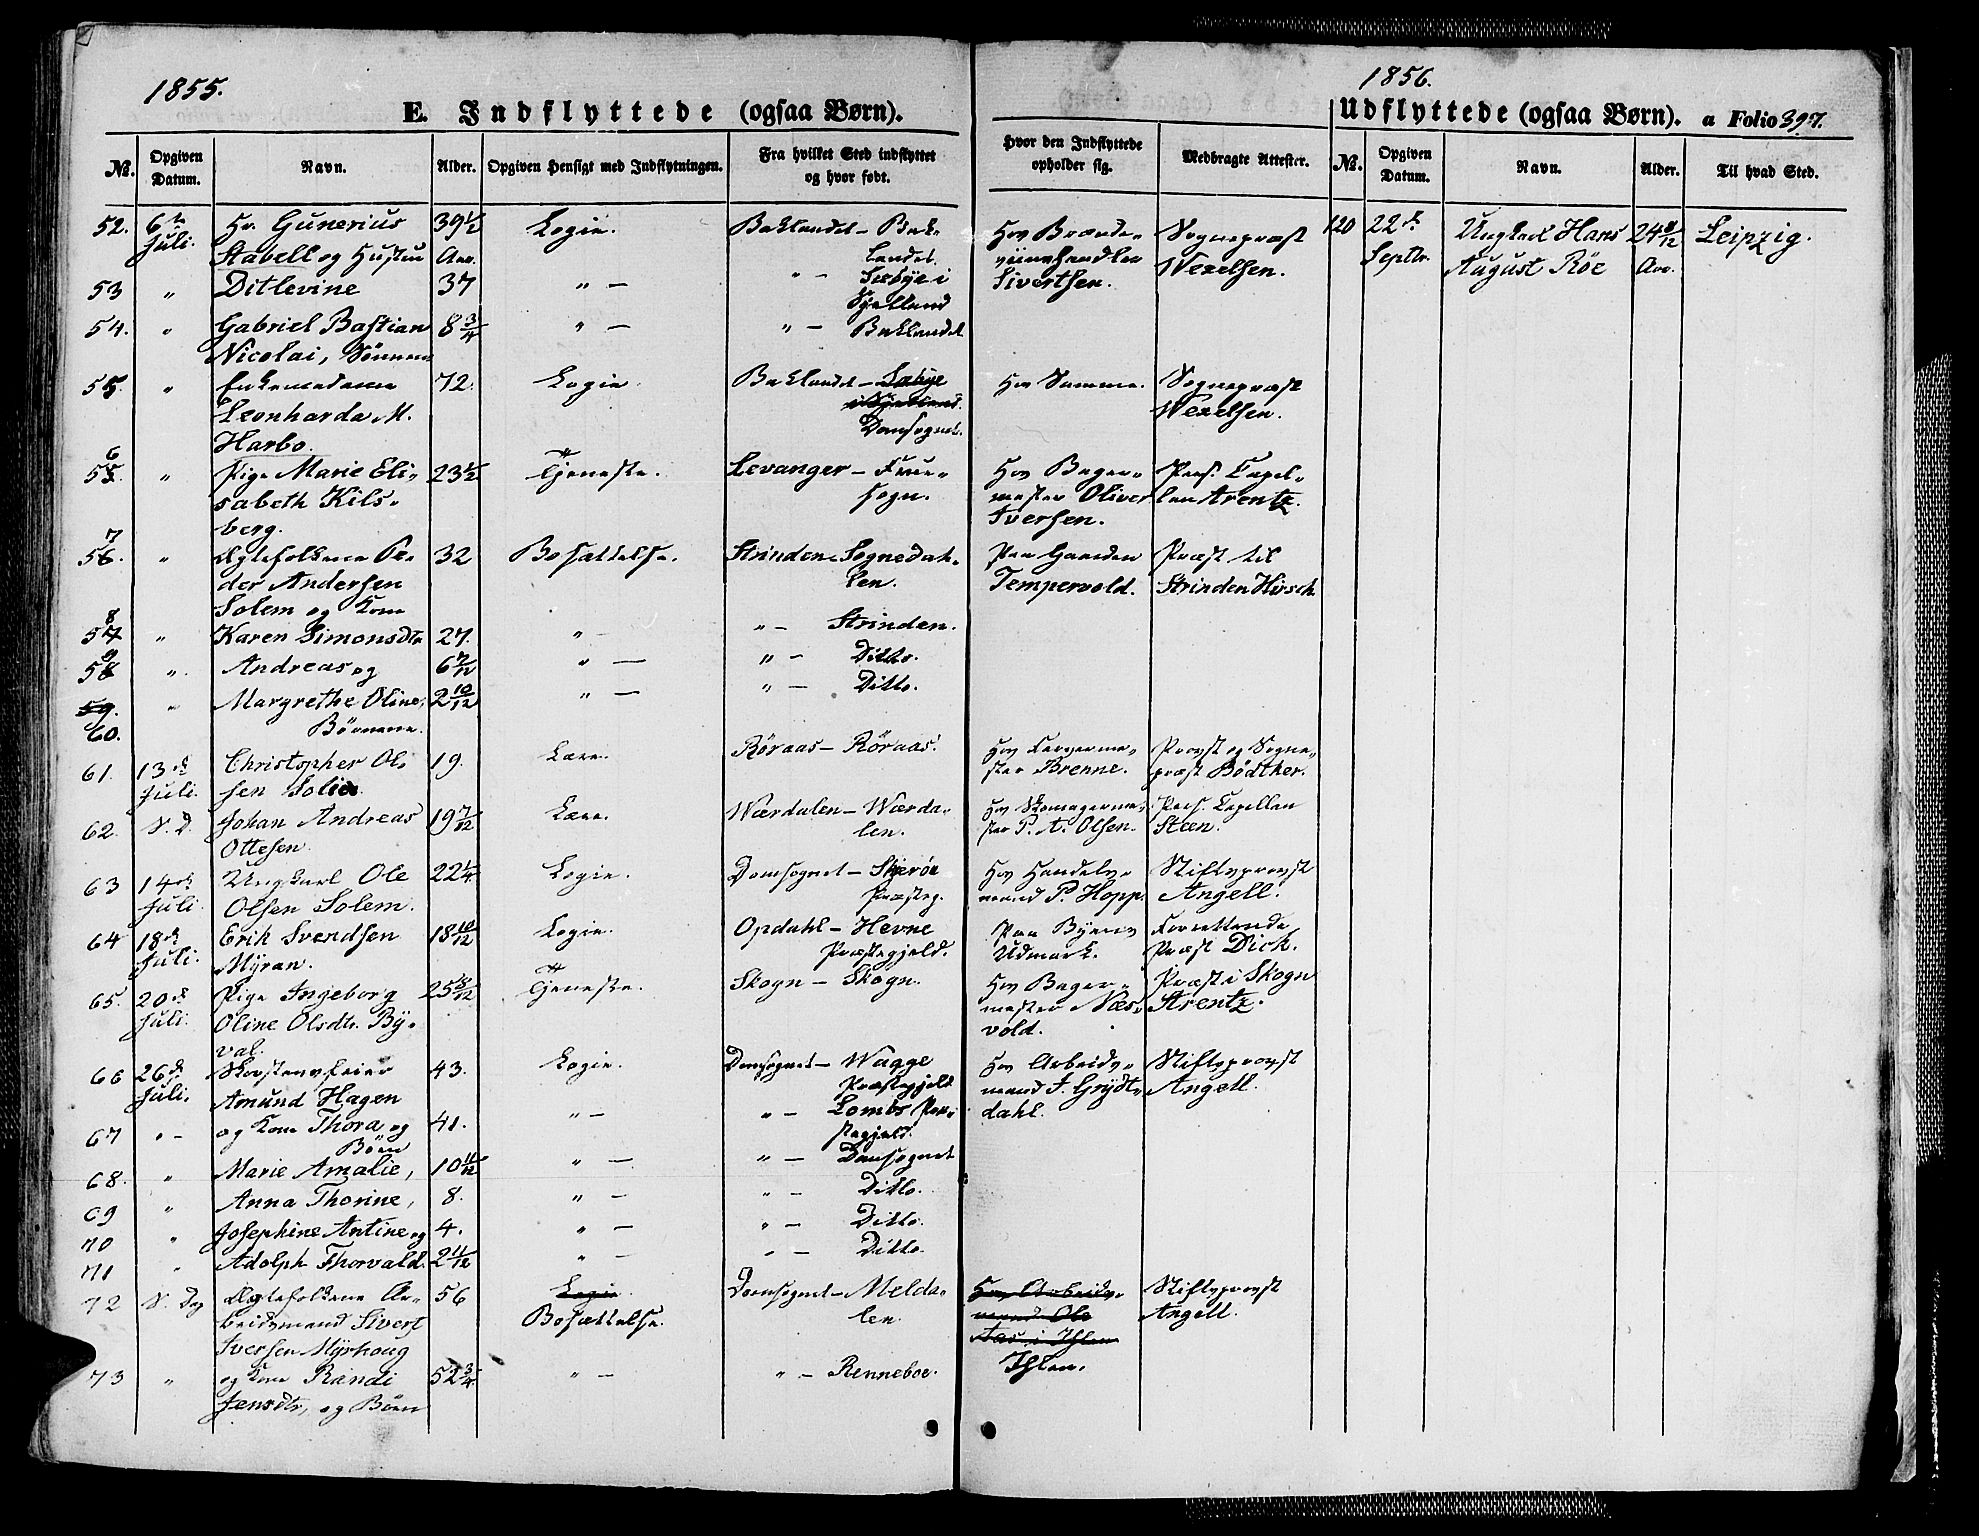 1855.
E. Indflyttede (ogsaa Børn).
No. | Opgiven Datum. | Navn. | Alder. | Opgiven Hensigt med Indflytningen. | Fra hvilket Sted indflyttet og hvor født. | Hvor den Indflyttede opholder sig. | Medbragte Attester.
52. 6te Juli. Hr. Gunerius Stabell og Hustru 39 1/2 Aar. Logie. Baklandet – Baklandet. Hos Brændeviinshandler Sivertsen. Sognepræst Wexelsen.
53 " Ditlevine 37 " — " – Sæbye i Sjælland
54. " Gabriel Bastian Nicolai, Sønnen 8 3/4 " — " – Baklandet
55 " Enkemadame Leonharda M. Harbo. 72. Logie. Baklandet – Sæbye i Sjælland. Domsognet. Hos Samme. Sognepræst Wexelsen.
556. " Pige Marie Elisabeth Kilsberg. 23 1/2 Tjeneste. Levanger – Fruesogn. Hos Bagermester Oliver Iversen. Pers. Capellan Arentz.
567. " Ægtefolkene Peder Andersen Solem og Kone 32 Bosættelse. Strinden – Sognedahlen. Paa Gaarden Tempervold. Præst til Strinden Hirsch.
578 " Karen Simonsdtr 27. " – " – Strinden.
589 " Andreas og 6 7/12 " — " – Ditto.
59. 60. " Margrethe Oline, Børnene. 2 10/12 " — " – Ditto.
61. 13de Juli. Christopher Olsen Solie 19. Lære. Røraas – Røraas. Hos Farvermester Brenne. Provst og Sognepræst Bødtker.
62. S. D. Johan Andreas Ottesen 19 7/12 Lære. Wærdalen – Wærdalen. Hos Skomagermester P. A. Olsen. Pers. Capellan Steen.
63 14de Juli. Ungkarl Ole Olsen Solem. 22 1/4 Logie. Domsognet – Skjerøe Præsteg. Hos Handelsmand P. Hopp. Stiftsprovst Angell.
64 18de Juli. Erik Svendsen Myran. 18 10/12 Logie. Opdahl – Hevne Præstegjeld. Paa Byens Udmark. Forrettende Præst Dick.
65. 20de Juli. Pige Ingeborg Oline Olsdtr. Byval. 25 8/12 Tjeneste. Skogn – Skogn. Hos Bagermester Næsvold. Præst i Skogn Arentz.
66 26de Juli. Skorstensfeier Amund Hagen 43. Logie. Domsognet – Wagge Præstegjeld Hos Arbeidsmand J. Grytdahl. Stiftsprovst Angell.
67 " – og Kone Thora og Børn 41. " — " – Lombs Præstegjeld.
68. " Marie Amalie, 10 11/12 " — " – Domsognet
69 " Anna Thorine, 8. " — " – Ditto.
70 " Josephine Antine og 4. " — " – Ditto.
71 " Adolph Thorvald. 2 11/12 " — " – Ditto.
72 S. Dag Ægtefolkene Arbeidsmand Sivert Iversen Myrhoug 56 Logie. Bosættelse. Domsognet – Meldalen. Hos Arbeidsmand Ole Aas i Ihlen Ihlen. Stiftsprovst Angell.
73 " og Kone Randi Jensdtr, og Børn 52 3/4 " — " – Renneboe.
1856.
Udflyttede (ogsaa Børn). a Folio 397.
No. | Opgiven Datum. | Navn. | Alder. | Til hvad Sted.
120 22de Septbr. Ungkarl Hans August Röe 24 8/12 Aar. Leipzig.